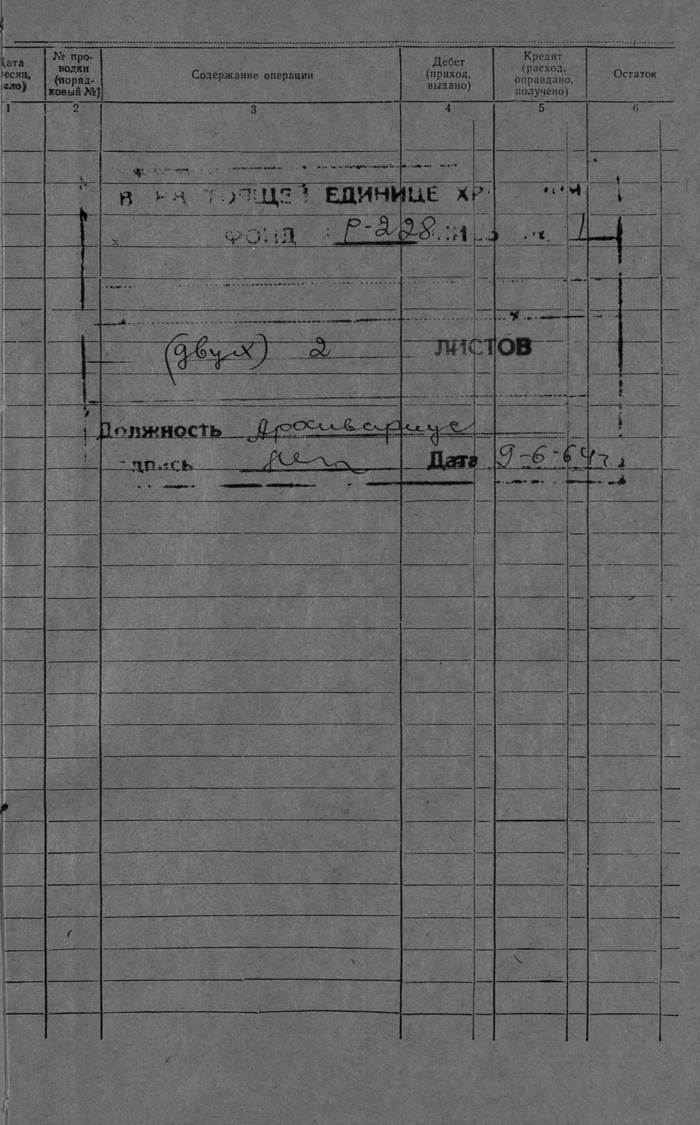 Дата месяц, число) № проводки (порядковый №) Содержание операции Дебет (приход, выдано) Кредит (расход, оправдано, получено) Остаток
1 2 3 4 5 6
В НАСТОЯЩЕЙ ЕДИНИЦЕ ХРАНЕНИЯ
ФОНД Р-228 1
(двух) 2 ЛИСТОВ
Должность Архивариус
дпись Дата 9-6-64г